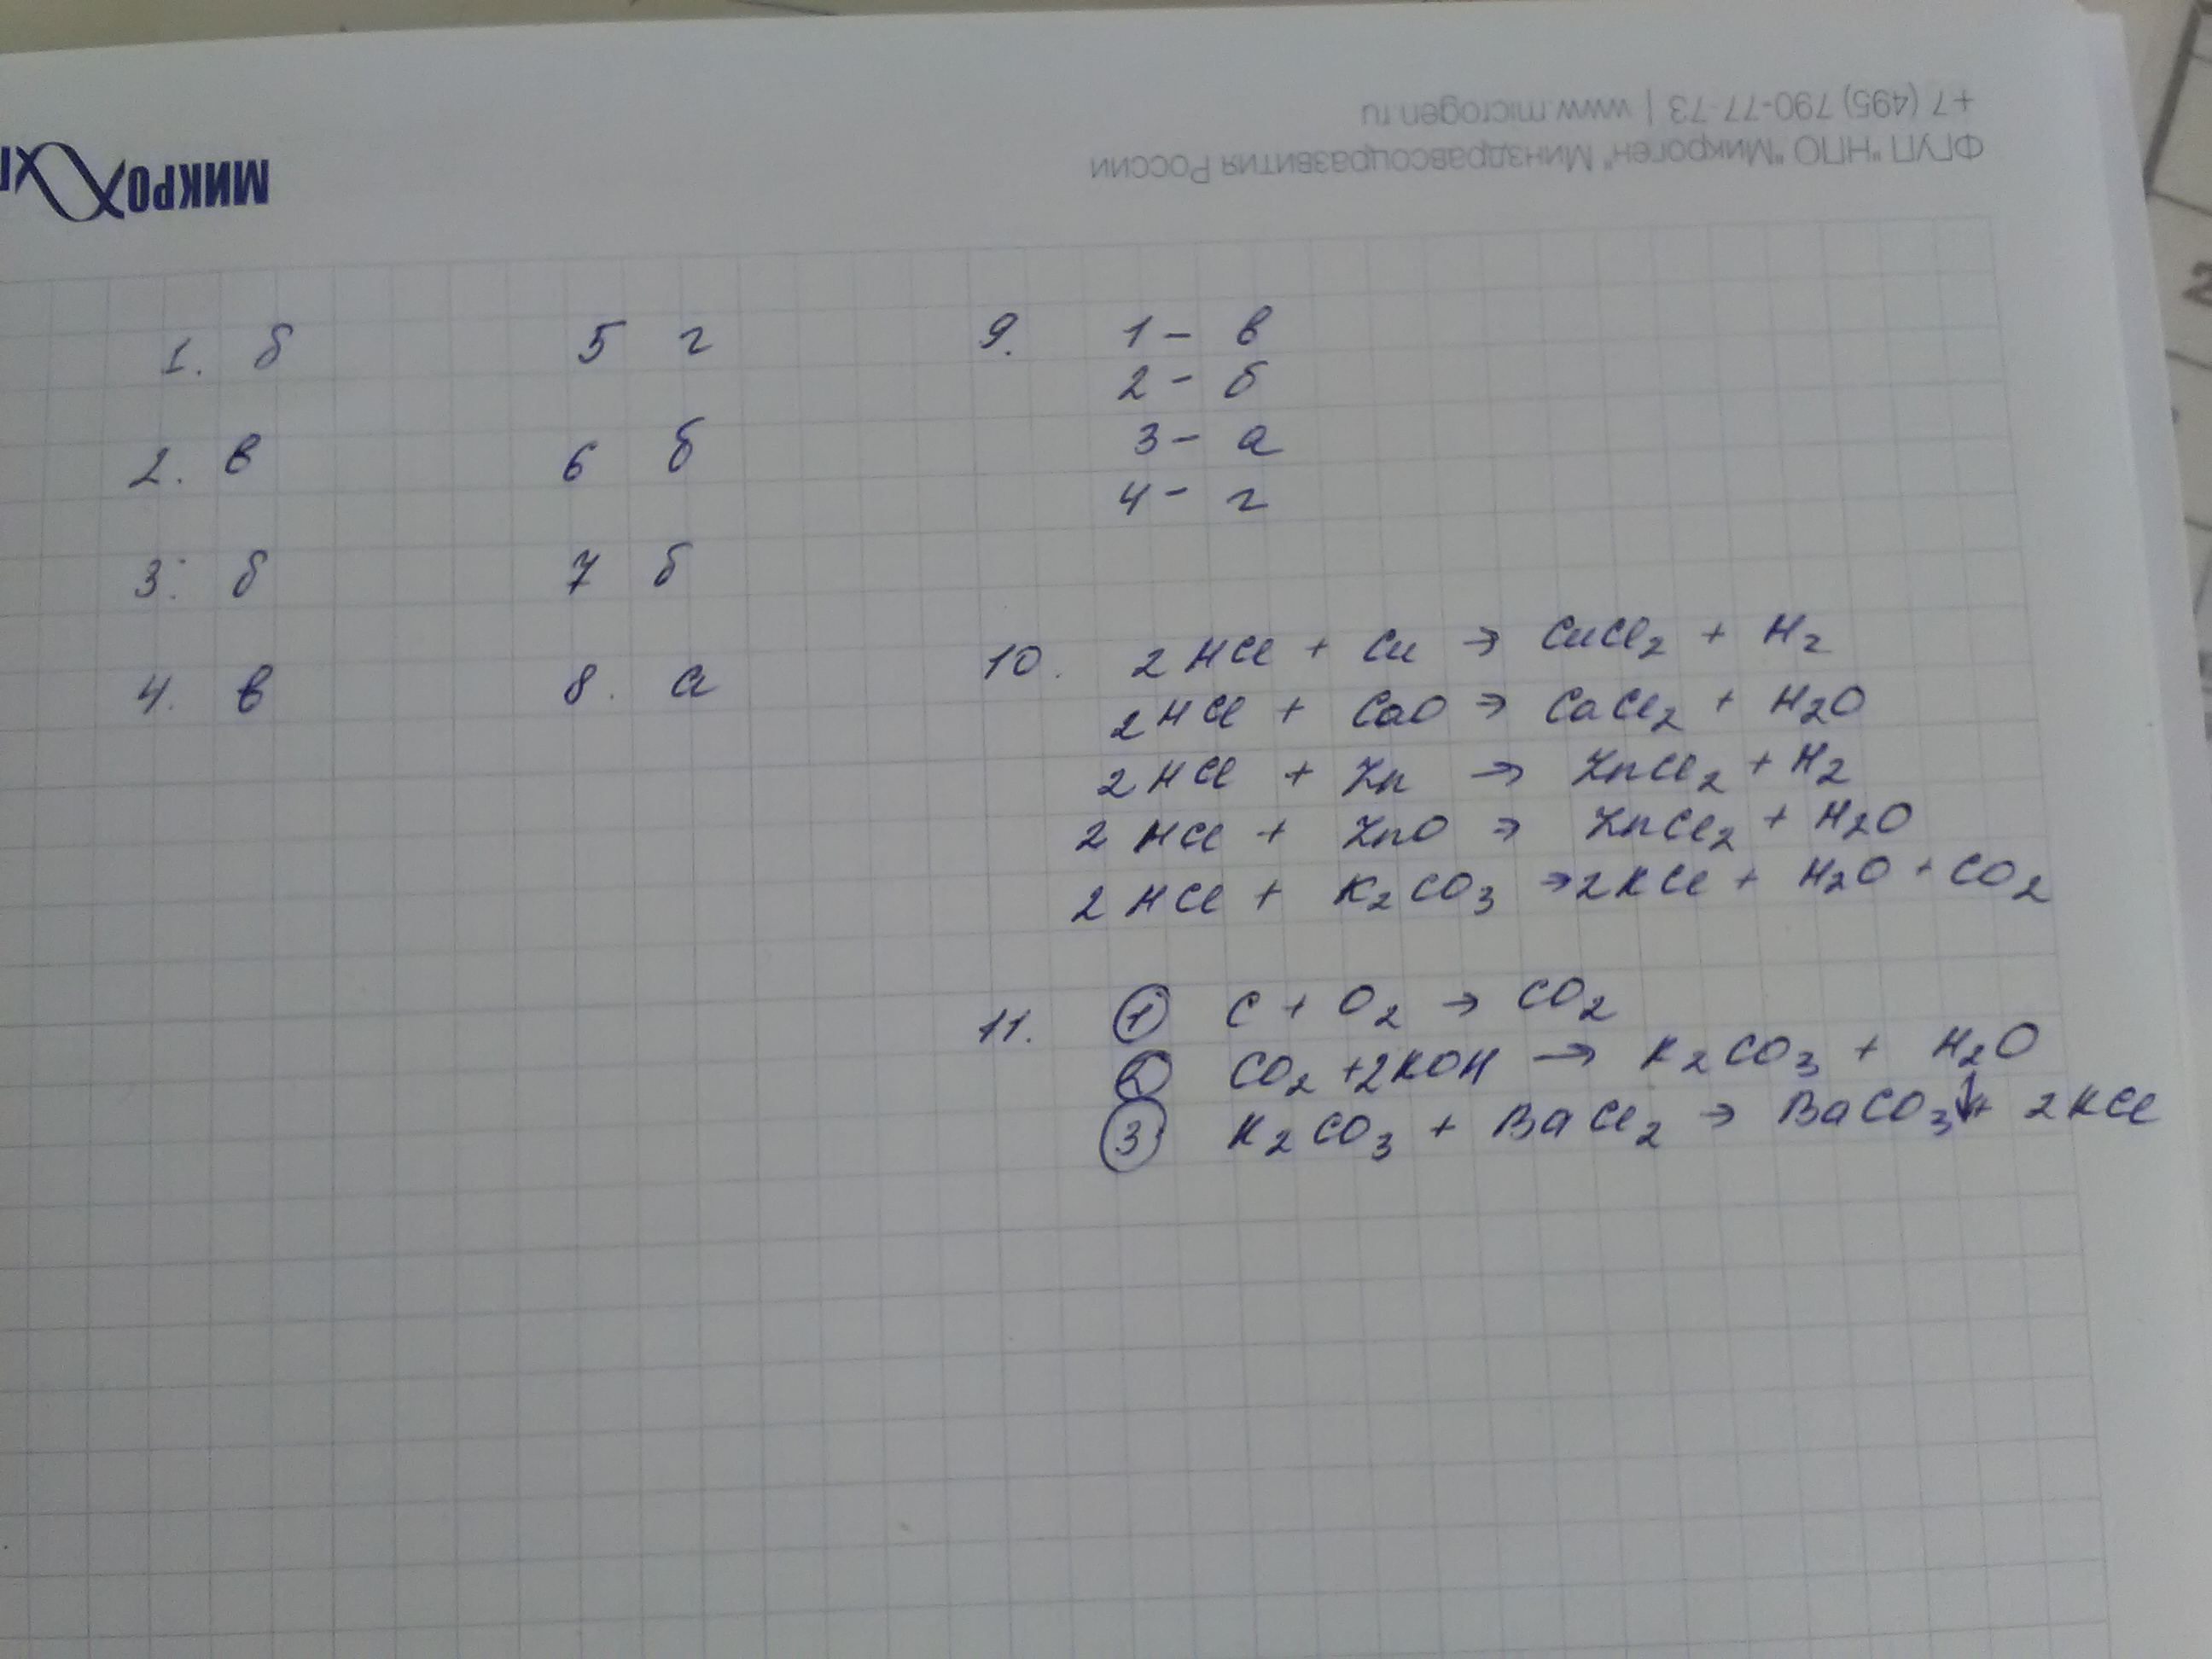 +7 (495) 790-77-73 | www.microgen.ru
ФГУП "НПО "Микроген" Минздравсоцразвития России
МИКРО
1. б
2. в
3. б
4. в
5 г
6 б
7 б
8. а
9. 1 - в
2 - б
3 - а
4 - г
10. 2HCl + Cu → CuCl2 + H2
2HCl + CaO → CaCl2 + H2O
2HCl + Zn → ZnCl2 + H2
2HCl + ZnO → ZnCl2 + H2O
2HCl + K2CO3 → 2KCl + H2O + CO2
11. ① C + O2 → CO2
② CO2 + 2KOH → K2CO3 + H2O
③ K2CO3 + BaCl2 → BaCO3↓ + 2KCl
2